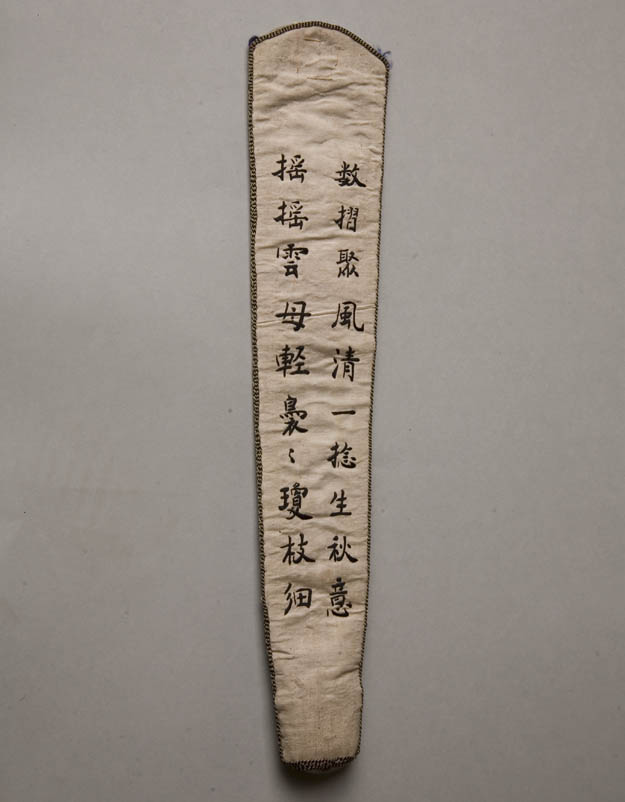 数摺聚風清一捻生秋意
摇摇雲母軽裊〻瓊枝細